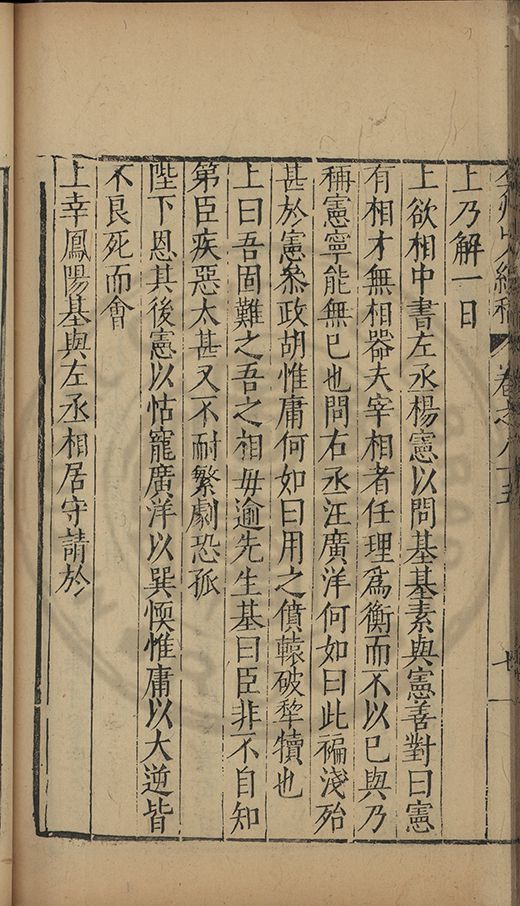 卷之八十五
上乃解一日
上欲相中書左丞楊憲以問基基素與憲善對曰憲
有相才無相器夫宰相者任理爲衡而不以已與乃
稱憲寧能無已也問右丞汪廣洋何如曰此褊淺殆
甚於憲叅政胡惟庸何如曰用之僨轅破犂犢也
上曰吾固難之吾之相毋逾先生基曰臣非不自知
第臣疾惡太甚又不耐繁劇恐孤
陛下恩其後憲以怙寵廣洋以巽愞惟庸以大逆皆
不良死而會
上幸鳳陽基與左丞相居守請於